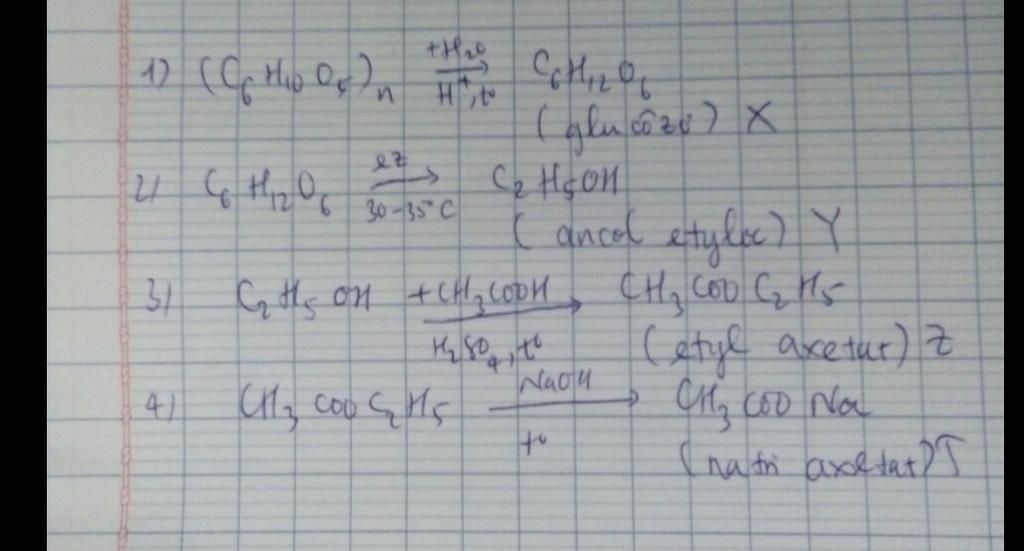 1) (C6H10O5)n +H2O H+, t° C6H12O6
(glucôzơ) X
2) C6H12O6 ez 30-35°C C2H5OH
(ancol etylic) Y
3) C2H5OH +CH3COOH H2SO4, t° CH3COOC2H5
(etyl axetat) Z
4) CH3COOC2H5 NaOH t° CH3COONa
(natri axetat) T